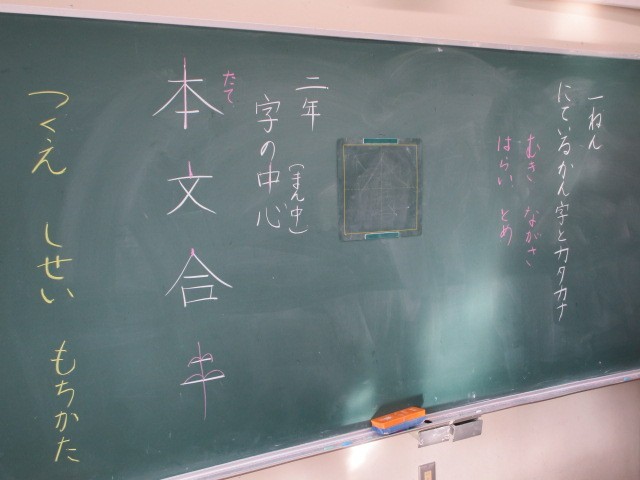 一ねん
にているかん字とカタカナ
むき ながさ
はらい とめ
二年
字の中心
(まん中)
たて
本文合半
つくえ しせい もちかた